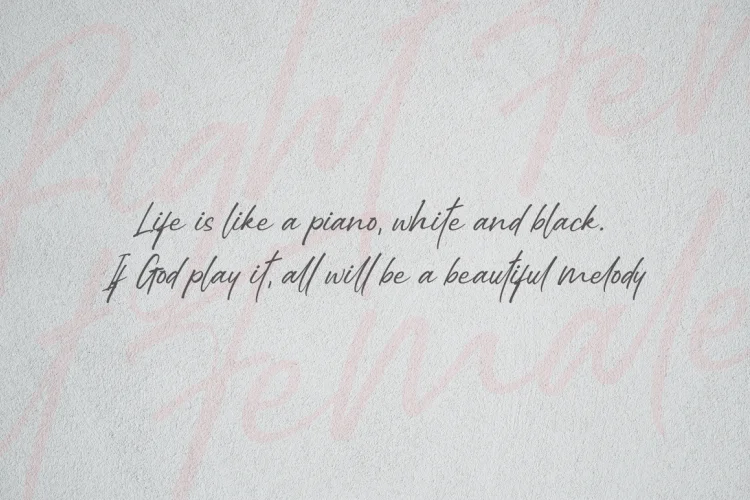 Right Fem
Life is like a piano, white and black.
If God play it, all will be a beautiful melody
Female